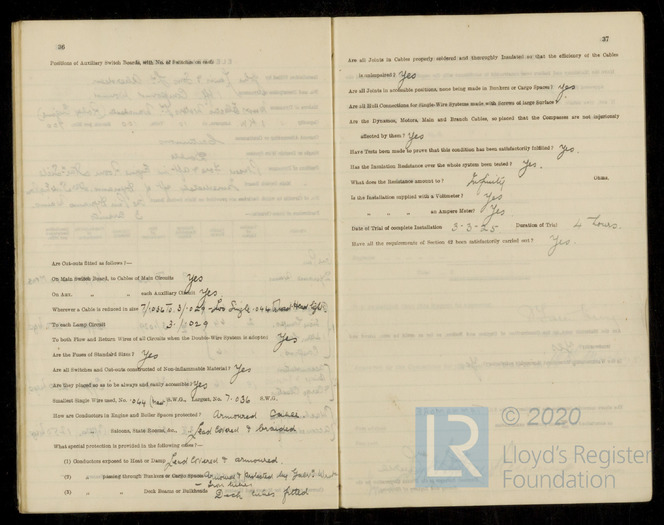 36
Positions of Auxiliary Switch Boards, with No. of Switches on each
Are Cut-outs fitted as follows :—
On Main Switch Board, to Cables of Main Circuits Yes
On Aux. „ „ each Auxiliary Circuit Yes.
Wherever a Cable is reduced in size 7/.036 To 3/.029 - two Single .044
To each Lamp Circuit 3/.029
To both Flow and Return Wires of all Circuits when the Double-Wire System is adopted Yes
Are the Fuses of Standard Sizes? Yes
Are all Switches and Cut-outs constructed of Non-inflammable Material? Yes
Are they placed so as to be always and easily accessible? Yes
Smallest Single Wire used, No. .044 S.W.G., Largest, No. 7.036 S.W.G.
How are Conductors in Engine and Boiler Spaces protected? Armoured Cables
„ Saloons, State Rooms, &c., Lead Covered & braided
What special protection is provided in the following cases?—
(1) Conductors exposed to Heat or Damp Lead Covered & armoured
(2) „ passing through Bunkers or Cargo Spaces Armoured & protected by
(3) „ „ Deck Beams or Bulkheads Deck tubes fitted
37
Are all Joints in Cables properly soldered and thoroughly Insulated so that the efficiency of the Cables
is unimpaired? Yes
Are all Joints in accessible positions, none being made in Bunkers or Cargo Spaces? Yes.
Are all Hull Connections for Single-Wire Systems made with Screws of large Surface?
Are the Dynamos, Motors, Main and Branch Cables, so placed that the Compasses are not injuriously
affected by them? Yes
Have Tests been made to prove that this condition has been satisfactorily fulfilled? Yes.
Has the Insulation Resistance over the whole system been tested? Yes.
What does the Resistance amount to? Infinity Ohms.
Is the Installation supplied with a Voltmeter? Yes
„ „ „ an Ampere Meter? Yes.
Date of Trial of complete Installation 3-3-25 Duration of Trial 4 hours.
Have all the requirements of Section 42 been satisfactorily carried out? Yes.
LR
© 2020
Lloyd's Register
Foundation